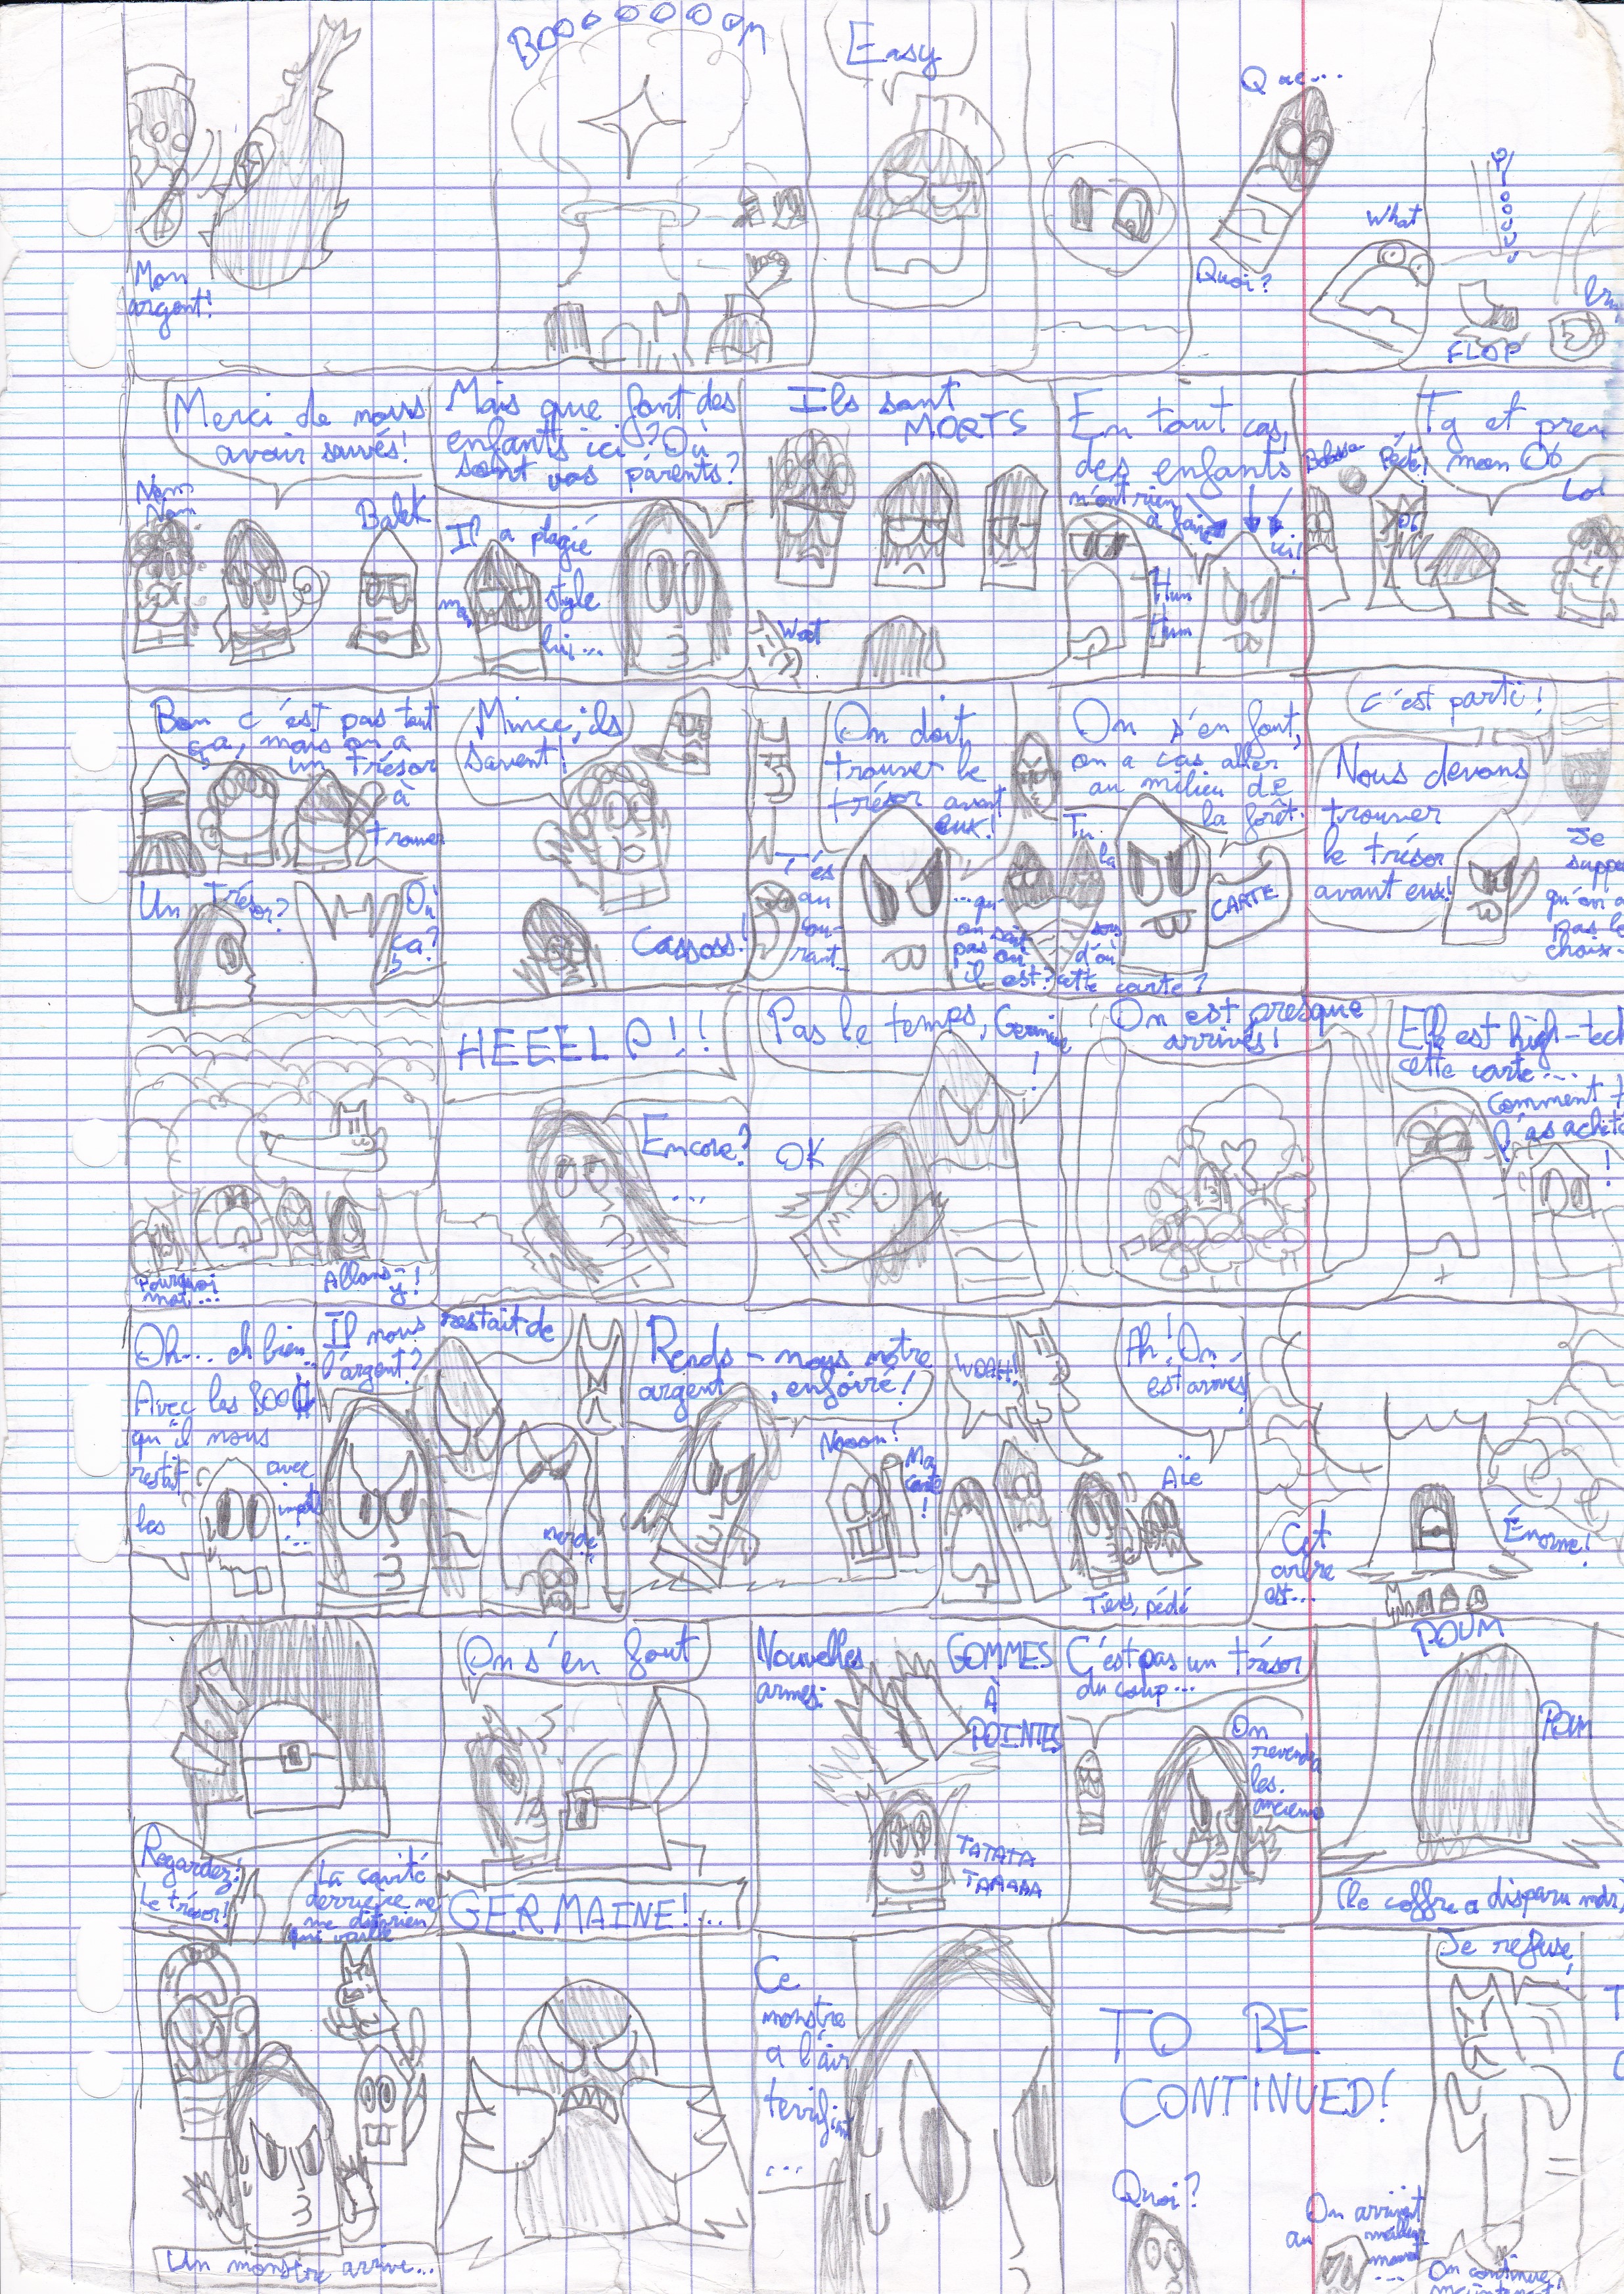 Booooooom
Easy
Que...
Mon
argent!
Quoi?
What
FLOP
Merci de nous
avoir sauvés!
Nom
Nom
Balek
Mais que font des
enfants ici? Où
sont vos parents?
Il a plagié
mon
style
lui...
Ils sont
MORTS
Woat
En tout cas,
des enfants
n'ont rien
à faire
ici!
Hum
Hum
Pédé!
Tg et
mon
Lol
Bon c'est pas tout
ça, mais on a
un trésor
à
trouver
Un trésor?
Où
ça?
Mince, ils
savent!
Cassoss!
On doit
trouver le
trésor avant
eux!
T'es
au
cou-
rant...
...qu'
on sait
pas où
il est?
On s'en fout,
on a cas aller
au milieu de
la forêt.
Tu
la
sors
d'où
cette carte?
CARTE
c'est parti!
Nous devons
trouver
le trésor
avant eux!
Je
qu'on a
pas le
choix
Pourquoi
moi...
Allons-
y!
HEEELP!!
Encore?
...
Pas le temps, Germaine
!
OK
On est presque
arrivés!
Elle est high-tech
cette carte...
Comment
l'as
!
Oh... eh bien...
Avec les 800
qu'il nous
restait
avec
les
...
Il nous restait de
l'argent?
merde
Rends-nous notre
argent, enfoiré!
Nooon!
Ma
carte
!
WOAH!
Ah! On
est arrivés
Aïe
Tiens, pédé
Cet
arbre
est...
Énorme!
Regardez!
Le trésor!
La cavité
derrière ne
me dit rien
qui vaille
On s'en fout
GERMAINE!...
Nouvelles
armes:
GOMMES
À
POINTES
TATATA
TAAAAA
C'est pas un trésor
du coup...
On
revendra
les
anciennes
POUM
POUM
(le coffre a disparu mdr)
Un monstre arrive...
Ce
monstre
a l'air
terrifiant
...
TO BE
CONTINUED!
Quoi?
Je refuse!
On arrivait
au
moment
...
On continue